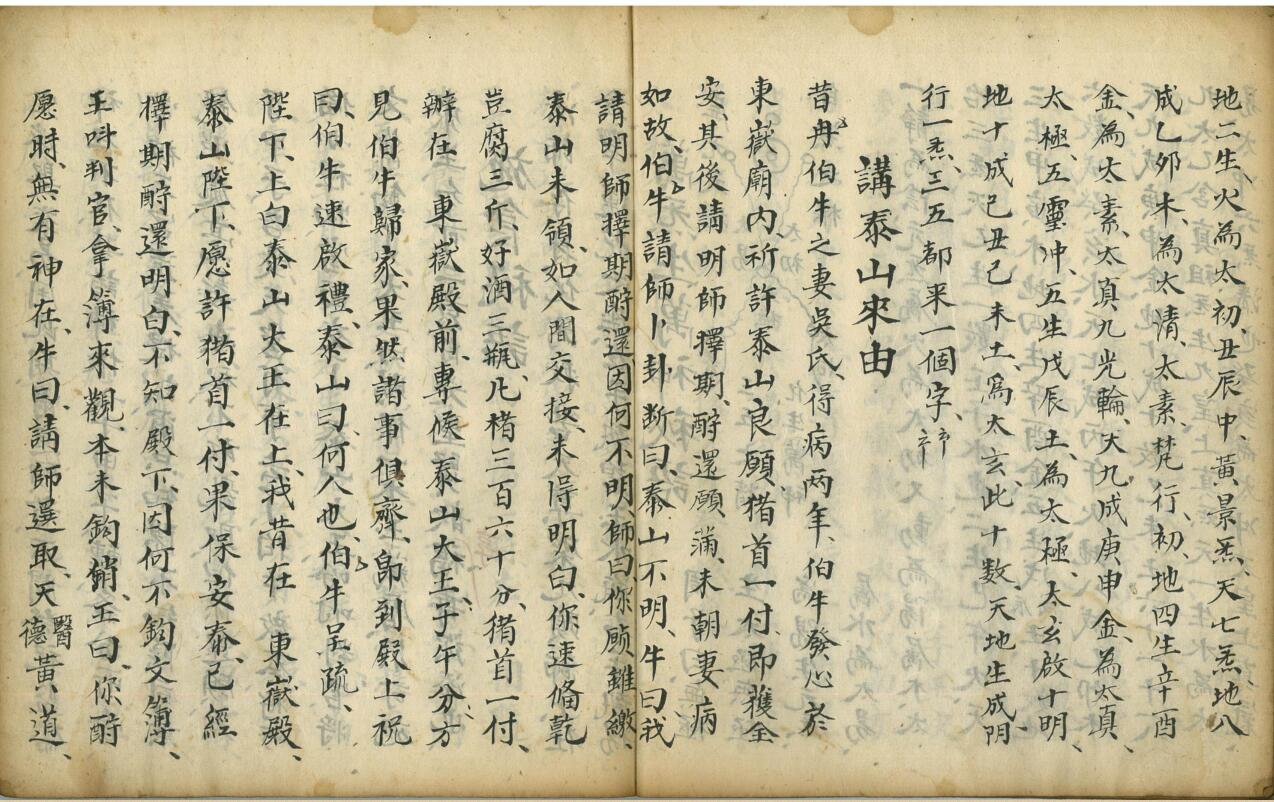 地二生火為太初、丑辰中、黃景炁、天七炁地八
成乙夘木、為太清、太素、梵行、初、地四生辛酉
金、為太素、太真九光輪、天九成庚申金、為太真、
太極、五靈冲、五生戊辰、土為太極、太玄啟十明
地十成己丑己未土、爲太玄、此十數、天地生成門
行一炁、三五都来一個字、
講泰山來由
昔冉伯牛之妻吳氏、得病两年、伯牛發心於
東嶽廟内、祈許泰山良願猪首一付、即獲全
安、其後請明師擇期、酧還願滿、未朝妻病
如故、伯牛請師卜卦、断曰、泰山不明、牛曰我
請明師擇期酧還、因何不明、師曰、你願雖繳、
泰山未領、如人間交接、未得明白、你速俻乾
豈腐三斤、好酒三瓶、凡楮三百六十分、猪首一付、
辦在東嶽殿前、專候泰山大王、子午分方、
見伯牛歸家、果然諸事俱齊、即到殿上祝
曰、伯牛速啟禮、泰山曰、何人也、伯牛呈疏、
陛下、上白泰山大王在上、我昔在 東嶽殿、
泰山陛下、愿許猪首一付、果保安泰、已經
擇期酧還明白、不知殿下、因何不鈎文簿、
王呌判官、拿簿來觀、本未鈎銷、王曰、你酧
愿時、無有神在、牛曰、請師選取、天醫德黃道、